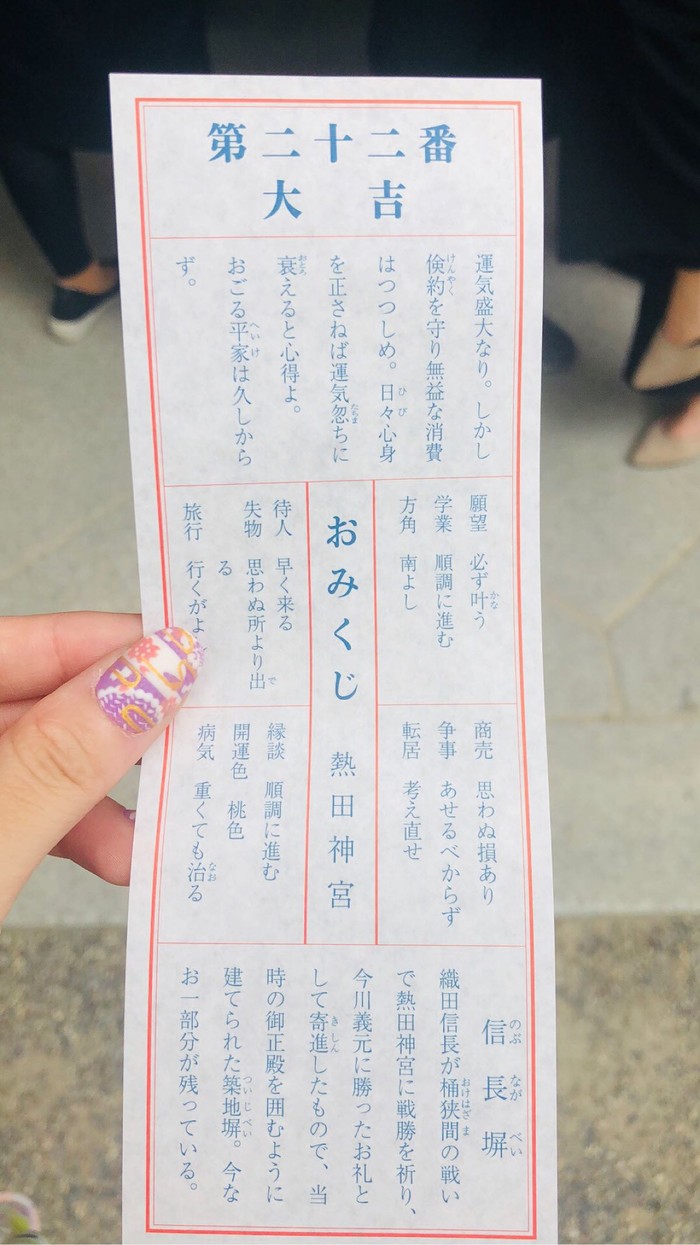 第二十二番
大吉
運気盛大なり。しかし
倹約を守り無益な消費
はつつしめ。日々心身
を正さねば運気忽ちに
衰えると心得よ。
おごる平家は久しから
ず。
願望 必ず叶う
学業 順調に進む
方角 南よし
商売 思わぬ損あり
争事 あせるべからず
転居 考え直せ
おみくじ 熱田神宮
待人 早く来る
失物 思わぬ所より出
る
旅行 行くがよ
縁談 順調に進む
開運色 桃色
病気 重くても治る
信長塀
織田信長が桶狭間の戦い
で熱田神宮に戦勝を祈り、
今川義元に勝ったお礼と
して寄進したもので、当
時の御正殿を囲むように
建てられた築地塀。今な
お一部分が残っている。